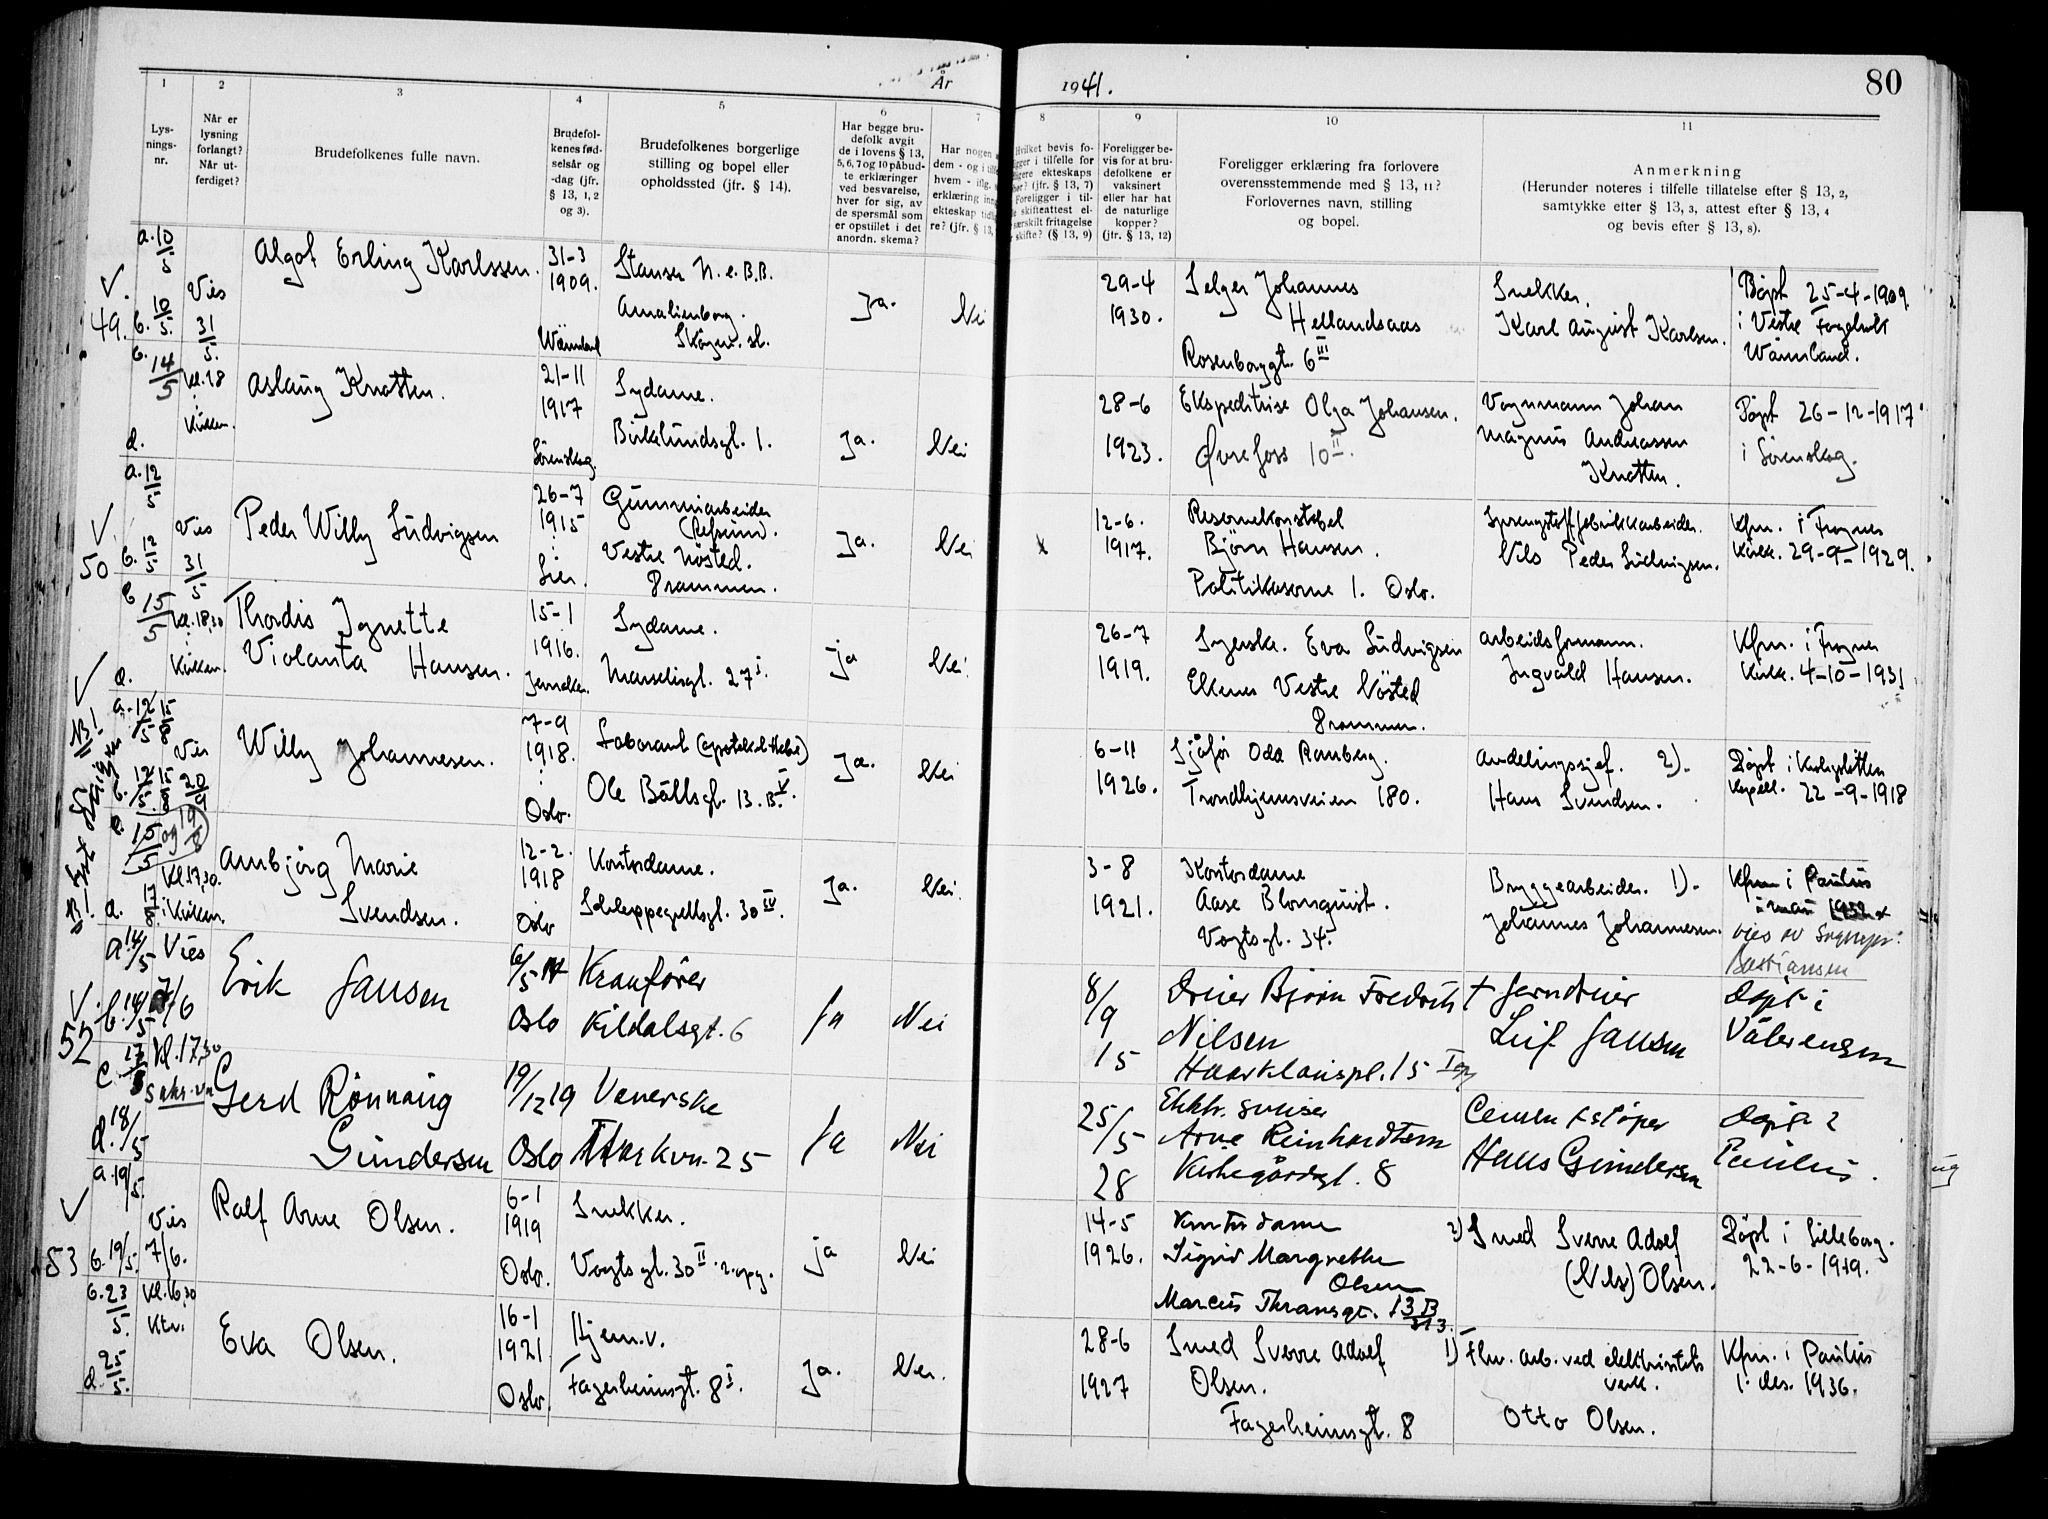 År
1941.
80
1
2
3
4
5
6
7
8
9
10
11
Lys-
nings-
nr.
Når er
lysning
forlangt?
Når ut-
ferdiget?
Brudefolkenes fulle navn.
Brudefol-
kenes fød-
selsår og
-dag (jfr.
§ 13, 1, 2
og 3).
Brudefolkenes borgerlige
stilling og bopel eller
opholdssted (jfr. § 14).
Har begge bru-
defolk avgit
de i lovens § 13,
5, 6, 7 og 10 påbud-
te erklæringer
ved besvarelse,
hver for sig, av
de spørsmål som
er opstillet i det
anordn. skema?
Har nogen
dem - og i
hvem - iflg.
erklæring inn
ekteskap tidl
re? (jfr. § 13,
Hvilket bevis fo-
ligger i tilfelle for
ligere ekteskaps
hør? (jfr. § 13, 7)
Foreligger i til-
skifteattest el-
særskilt fritagelse
skifte? (§ 13, 9)
Foreligger be-
vis for at bru-
defolkene er
vaksinert
eller har hat
de naturlige
kopper?
(jfr. § 13, 12)
Foreligger erklæring fra forlovere
overensstemmende med § 13, 11?
Forlovernes navn, stilling
og bopel.
Anmerkning
(Herunder noteres i tilfelle tillatelse efter § 13, 2,
samtykke efter § 13, 3, attest efter § 13, 4
og bevis efter § 13, 8).
49.
a. 10/5
b. 10/5.
c. 14/5
d.
Vies
31/5.
kl. 18
i
Kirken.
Algot Erling Karlssen.
31-3
1909.
Amalienborg.
Ja.
Nei
29-4
1930.
Selger Johannes
Hellandsaas
Rosenborggt. 6 III
Snekker.
Karl August Karlsen.
Døpt 25-4-1909
i Vestre
Wärmland.
Aslaug Knatten.
21-11
1917
Sørenskog.
Sydame.
Birkelundsgt. 1.
Ja.
Nei
28-6
1923.
Ekspeditrise Olga Johansen.
Øvrefoss 10 II.
Vognmann Johan
Magnus Andreassen
Knatten.
Døpt 26-12-1917
i Sørenskog.
50
a. 12/5
b. 12/5
c. 15/5
d.
Vies
31/5
kl. 18,30
i
Kirken.
Peder Willy Ludvigsen
26-7
1915
Lier.
Gummiarbeider
Vestre Nøsted.
Drammen.
Ja.
Nei
x
12-6.
1917.
Reservekonstabel
Bjørn Hansen.
Politikaserne 1. Oslo.
Sprengstoffabrikkarbeider.
Nils Peder Ludvigsen.
Kfm. i Frogner
Kirke. 29-9-1929.
Thordis Agnette
Violanta Hansen.
15-1
1916.
Sydame.
Marselisgt. 27 I.
ja
Nei.
26-7
1919.
Syerske. Eva Ludvigsen
Vestre Nøsted
Drammen.
Arbeidsformann.
Ingvald Hansen.
Kfm. i Frogner
Kirke. 4-10-1931
NB!
NB! Lyst
a. 12/5 15/8
b. 12/5. 15/8
c. 15/5 og 19/8
d. 17/8.
Vies
20/9
Kl. 17,30.
i Kirken.
Willy Johannesen.
7-9
1918.
Oslo.
Ole Bullsgt. 13. B. V.
Ja.
Nei
6-11
1926.
Sjåfør Odd Ramberg.
Trondhjemsveien 180.
Avdelingssjef. 2).
Hans Svendsen.
Døpt i
Kapell. 22-9-1918
Ambjørg Marie
Svendsen.
12-2.
1918
Oslo
Kontordame.
Schleppegrellsgt. 30 IV.
Ja.
Nei.
3-8
1921.
Kontordame
Aase Blomquist.
Vogtsgt. 34.
Bryggearbeider. 1).
Johannes Johannesen.
Kfm i Paulus
Bastiansen
52
a. 14/5
b. 14/5
c. 17/5
d. 18/5
Vies
7/6
Kl. 17,30
Erik Jansen
6/5
Oslo
Kranfører
Kildalsgt. 6
Ja
Nei
8/9
15
Dreier Bjørn Fredrik
Nilsen
+ Jerndreier
Leif Jansen
Døpt i
Vålerengen
Gerd Rønnaug
Gundersen
19/12 19
Oslo
Veverske
25
Ja
Nei
25/5
28
Elektr. sveiser
Arne Reinhardtsen
Kirkegårdsgt. 8
Cementstøper
Hans Gundersen
Døpt i
Paulus.
53
a. 19/5.
b. 19/5.
c. 23/5.
d. 25/5.
Vies
7/6.
Kl. 16,30
Ktr.
Rolf Arne Olsen.
6-1
1919
Oslo.
Snekker.
Vogtsgt. 30 II. 2. opg.
ja
Nei
14-5
1926.
Kontordame
Sigrid Margrethe
Olsen
Marcus Thranesgt. 13 B
2) Smed Sverre Adolf
(Nils) Olsen.
Døpt i Lilleborg.
22-6-1919.
Eva Olsen.
16-1
1921
Oslo.
Hjem.v.
Fagerheimsgt. 8 I.
Ja.
Nei.
28-6
1927
Smed Sverre Adolf
Olsen.
Fagerheimsgt. 8
1) Fhv. arb. ved elektrisitets
verk.
Otto Olsen.
Kfm. i Paulus
1. des. 1936.